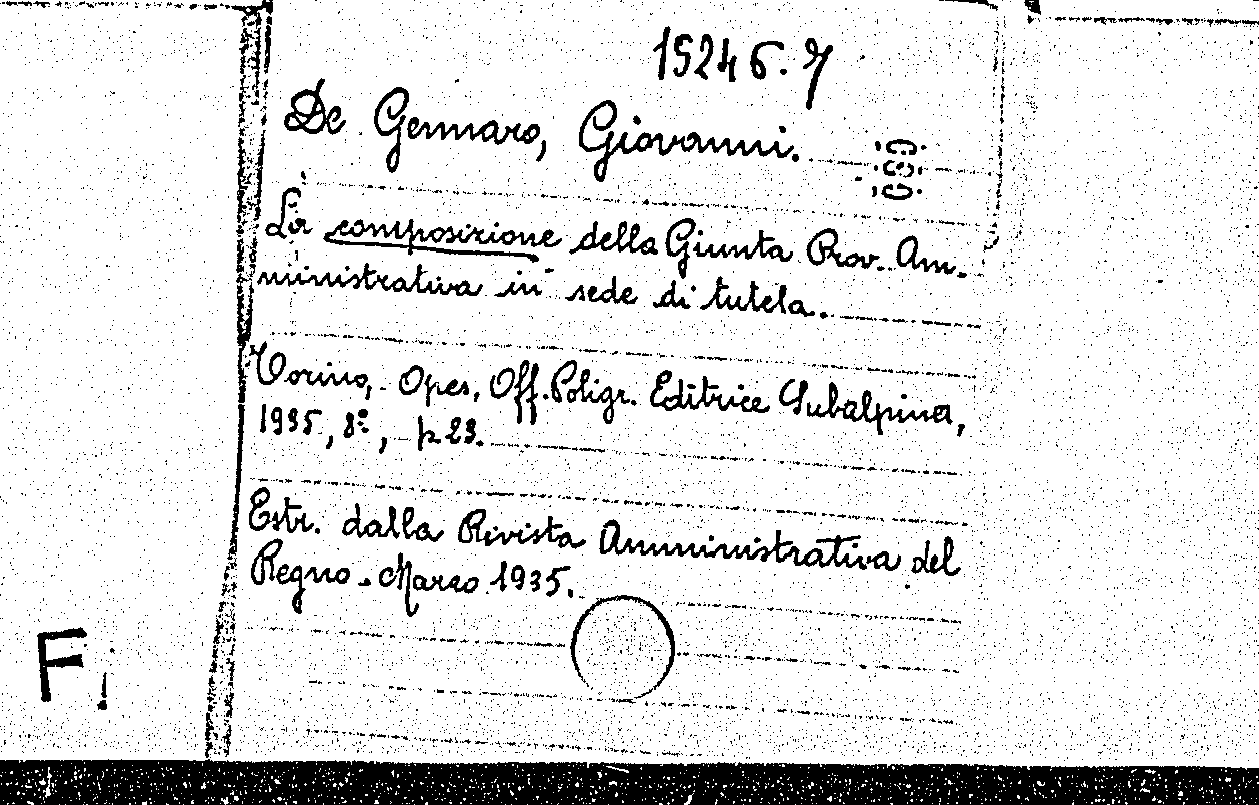 15246.7
De Gennaro, Giovanni.
La composizione della Giunta Prov. Am-
ministrativa in sede di tutela.
Torino, Oper. Off. Poligr. Editrice Subalpina,
1935, 8º, p 23.
Estr. dalla Rivista Amministrativa del
Regno - Marzo 1935.
Fi